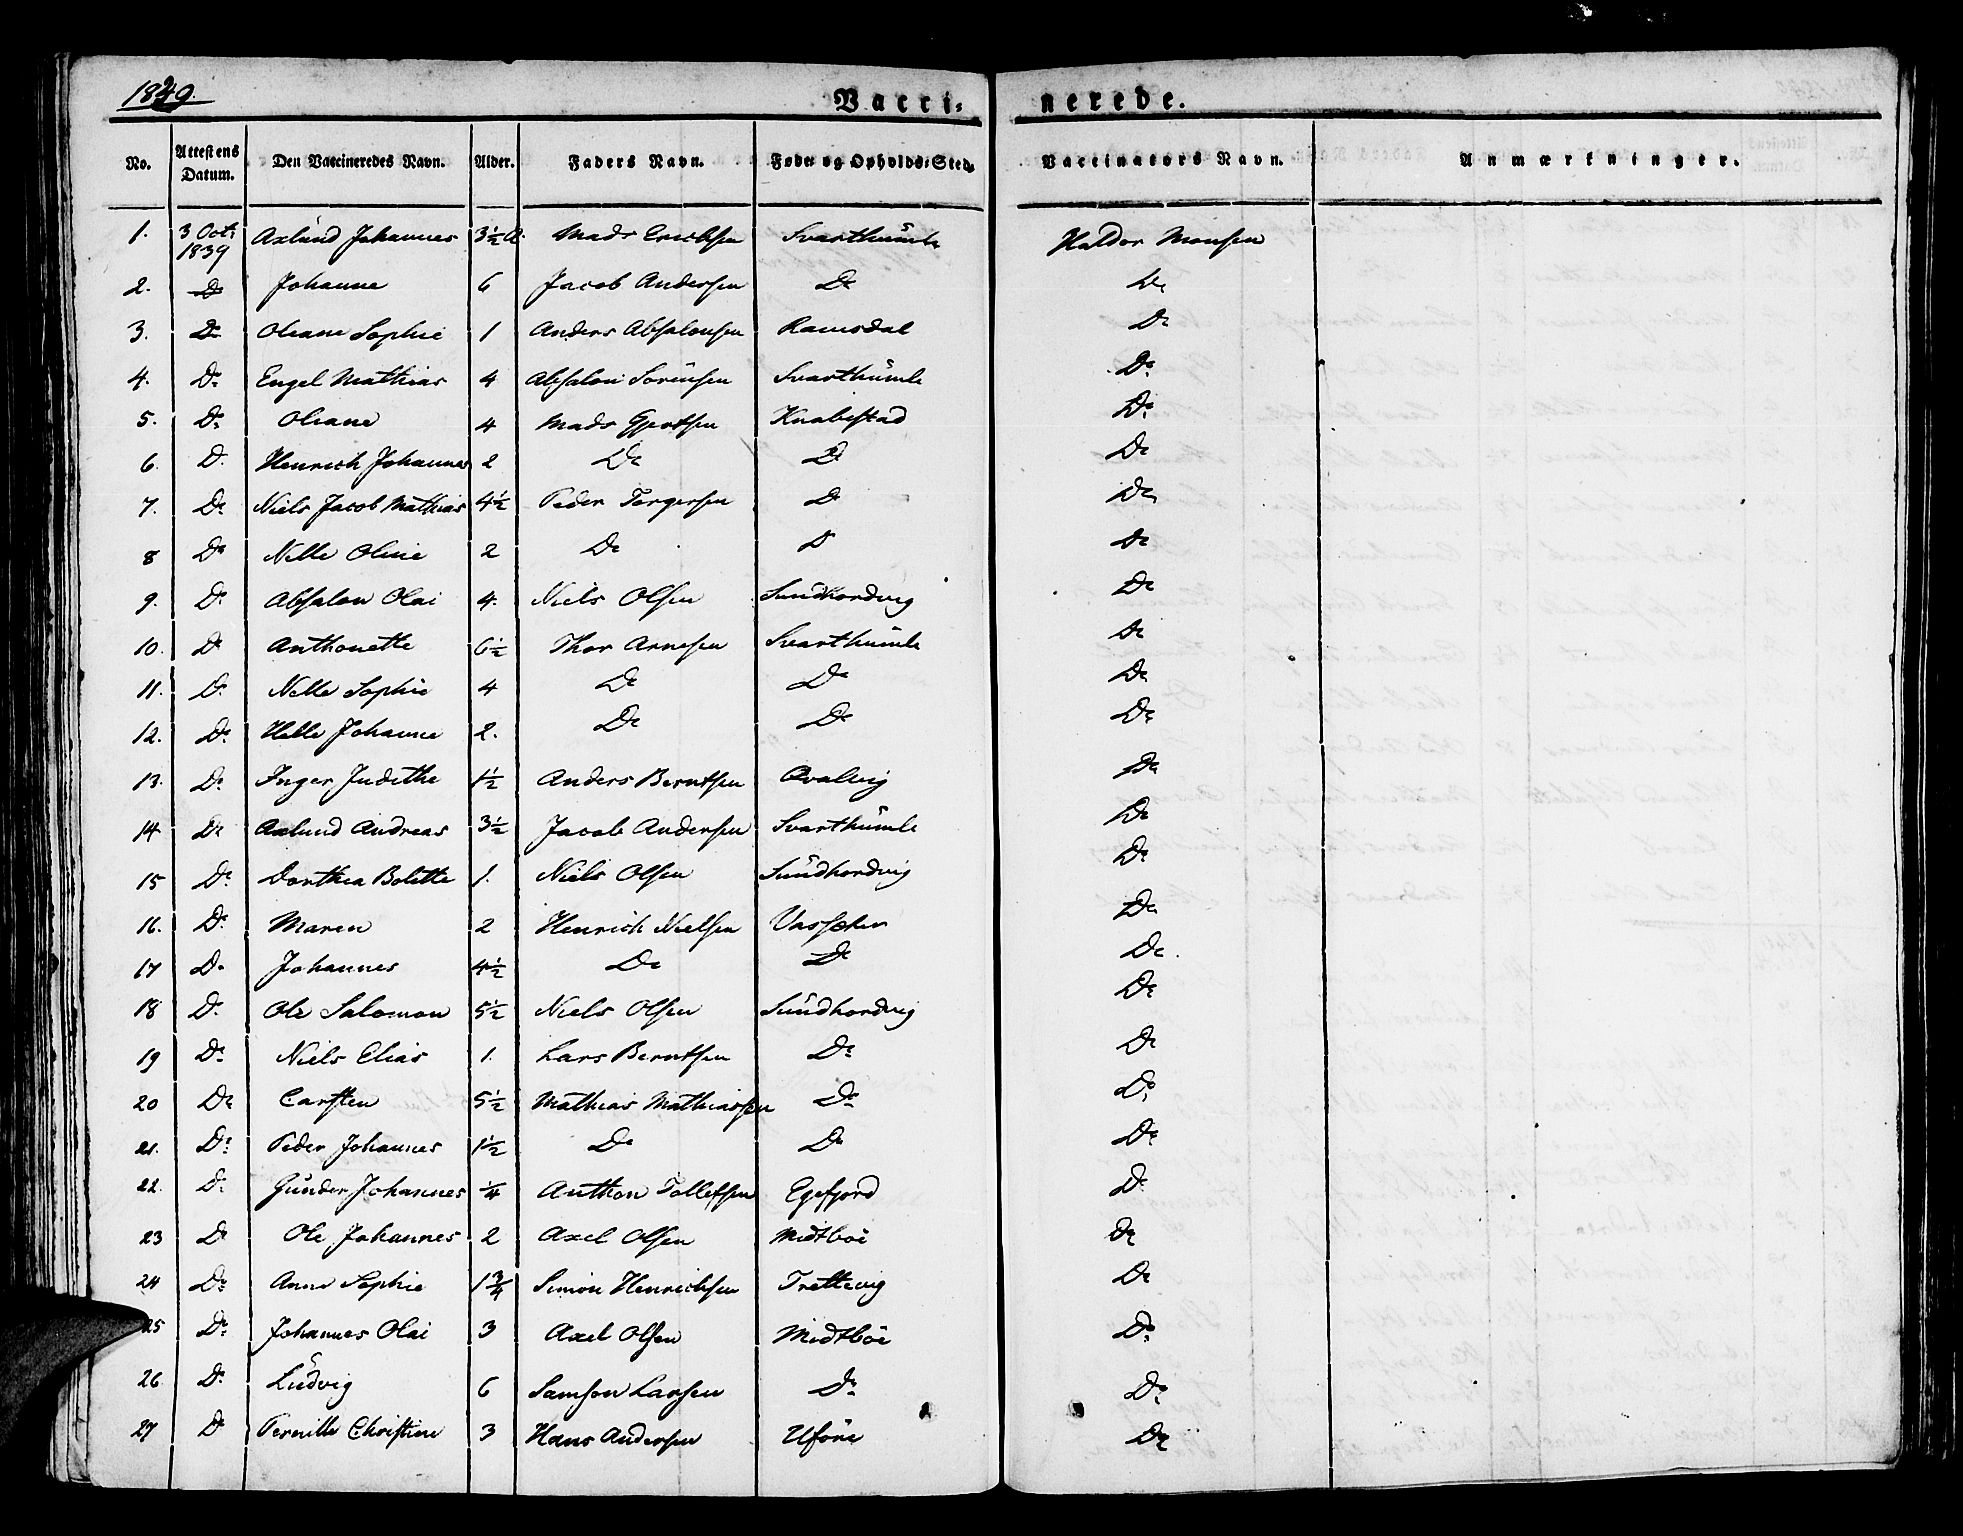 1839.
Vacci-nerede.
No. Attestens Datum. Den Vaccineredes Navn. Alder. Faders Navn. Føde og Opholds-Sted. Vaccinators Navn. Anmærkninger.
1. 3 Oct: 1839 Axlund Johannes 3½ A. Mads Erichsen Svarthumle Haldor Monsen
2. D Johanne 6 Jacob Andersen Do Do
3. Do Oleane Sophie 1 Anders Absalonsen Ramsdal Do
4. Do Engel Mathias 4 Absalon Sörensen Svarthümle Do
5. Do Oleane 4 Mads Gjertsen Knabestad Do
6. D. Henrich Johannes 2 Do D Do
7. Do Niels Jacob Mathias 4½ Peder Tergersen D Do
8 Do Nille Oline 2 Do D Do
9. Do Absalon Olai 4. Niels Olsen Sundhordvig Do
10. Do Anthonette 6½ Thor Arnesen Svarthümle Do
11. D. Nille Sophie 4 Do Do Do
12. Do Helle Johanne 2. Do Do Do
13. Do Inger Judithe 1½ Anders Berntsen Qvalvig Do
14 Do Axlund Andreas 3½ Jacob Andersen Svarthümle Do
15 Do Dorthea Bolette 1. Niels Olsen Sündhordvig Do
16. Do Maren 2 Henrich Nielsen Vassæter Do
17 Do Johannes 4½ Do Do Do.
18 D. Ole Salomon 5½ Niels Olsen Sündhordvig Do
19 Do Niels Elias 1. Lars Berntsen Do Do
20 Do Carsten 5½ Mathias Mathiassen Do Do
21. Do Peder Johannes 1½ Do Do Do
22. D. Günder Johannes ¼ Anthon Tollefsen Egefjord D
23 Do Ole Johannes 2 Axel Olsen Midtböe Do
24 Do Anne Sophie 1¾ Simon Henrichsen Trettevig Do
25 Do Johannes Olai 3 Axel Olsen Midtböe Do
26. Do Lüdvig 6 Samson Larsen Do Do
27 Do Pernille Christine 3 Hans Andersen Uföre Do